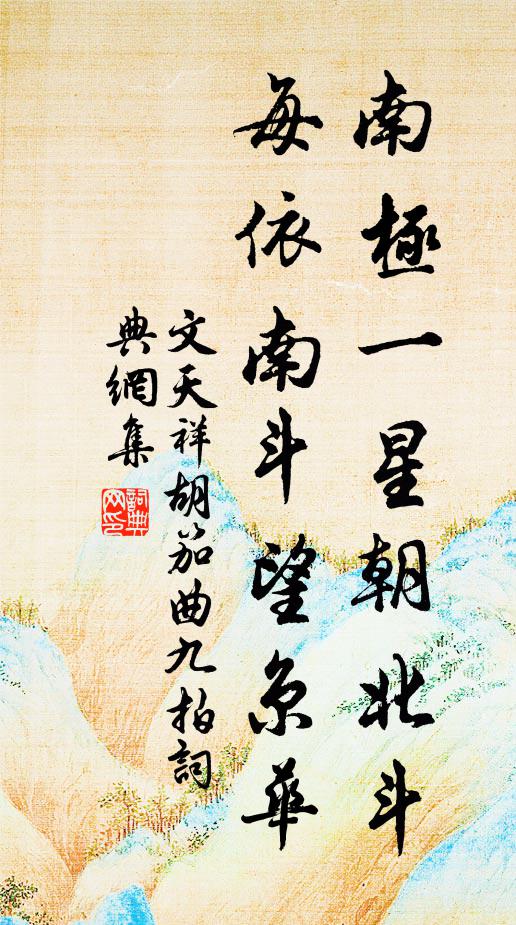 南極一星朝北斗
每依南斗望京華
文天祥胡笳曲九拍詞
典網集
詞典網印